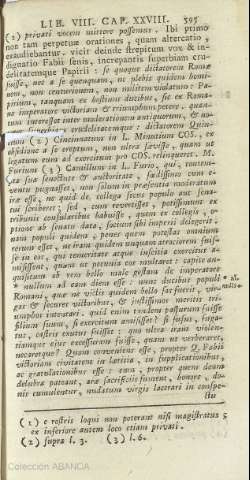 LIB. VIII. CAP. XXVIII. 595
(1) privati vocem mittere possemus. Ibi primo
non tam perpetuæ orationes, quam altercatio,
exaudiebantur. vicit deinde strepitum vox & in-
dignatio Fabii senis, increpantis superbiam cru-
delitatemque Papirii: se quoque dictatorem Romæ
fuisse, nec a se quenquam, ne plebis quidem homi-
nem, non centurionem, non militem violatum: Pa-
pirium, tanquam ex hostium ducibus, sic ex Roma-
no imperatore victoriam & triumphum petere. quan-
tum interesset inter moderationem antiquorum, & no-
& crudelitatemque: dictatorem Quin-
(2) Cincinnatum in L. Minutium COS. ex
obsidione a se ereptum, non ultra sævisse, quam ut
legatum eum ad exercitum pro COS. relinqueret. M.
Furium (3) Camillum in L. Furio, qui,
sua senectute & auctoritate, fœdissimo cum
ventu pugnasset, non solum in præsentia moderatum
iræ esse, ne quid de collega secus populo aut sena-
tui scriberet; sed, cum revertisset, potissimum ex
tribunis consularibus habuisse, quem ex collegis, o-
ptione ab senatu data, socium sibi imperii delegerit.
nam populi quidem, penes quem potestas omnium
rerum esset, ne iram quidem unquam atrociorem fuis-
se in eos, qui temeritate atque inscitia exercitus a-
misissent, quam ut pecunia eos multaret: capite an-
quisitum ob rem bello male gestam de imperatore
* nullum ad eam diem esse. nunc ducibus populi * al.
Romani, quæ ne victis quidem bello fas fuerit, vir-
gas & secures victoribus, & justissimos meritis tri-
umphos intentari. quid enim tandem passurum fuisse
filium suum, si exercitum amisisset? si fusus, fuga-
tus, castris exutus fuisset? quo ultra iram violen-
tiamque ejus excessuram fuisse, quam ut verberaret,
necaretque? Quam conveniens esse, propter Q. Fabii
victoriam civitatem in lætitia, in supplicationibus,
ac gratulationibus esse: eum, propter quem deum
delubra pateant, aræ sacrificiis fument, honore, do-
nis cumulentur, nudatum virgis lacerari in conspe-
ctu
(1) e rostris loqui non poterant nisi magistratus;
ex inferiore autem loco etiam privati.
(2) supra l. 3. (3) l. 6.
Colección ABANCA